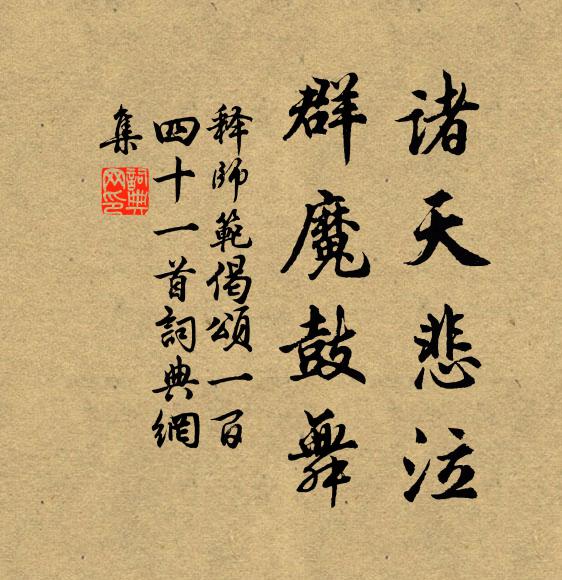 诸天悲泣
群魔鼓舞
释师範偈頌一百
四十一首詞典網
集
詞典
网印